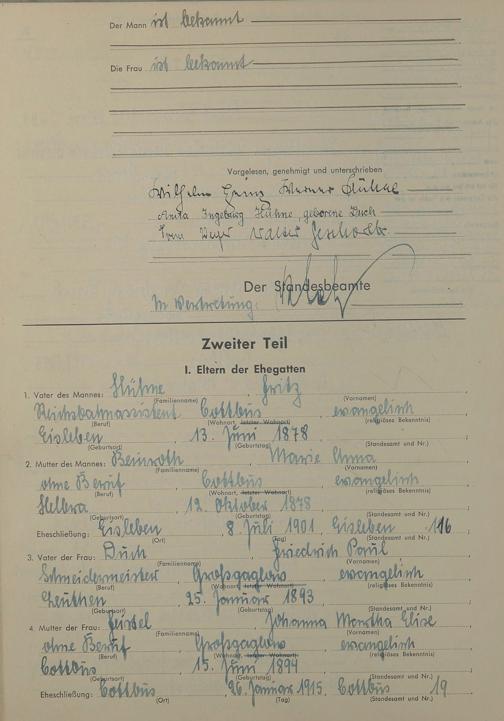 Der Mann ist bekannt
Die Frau ist bekannt
Vorgelesen, genehmigt und unterschrieben
Wilhelm Heinz Werner Hühne
Anita Ingeburg Hühne, geborene Duch
Walter
Der Standesbeamte
In Vertretung:
Zweiter Teil
I. Eltern der Ehegatten
1. Vater des Mannes: Hühne, Fritz
(Familienname) (Vornamen)
Reichsbahnassistent, Cottbus, evangelisch
(Beruf) (Wohnort, letzter Wohnort) (religiöses Bekenntnis)
Eisleben, 13. Juni 1878
(Geburtsort) (Geburtstag) (Standesamt und Nr.)
2. Mutter des Mannes: Beinroth, Marie Anna
(Familienname) (Vornamen)
ohne Beruf, Cottbus, evangelisch
(Beruf) (Wohnort, letzter Wohnort) (religiöses Bekenntnis)
Helbra, 12. Oktober 1878
(Geburtsort) (Geburtstag) (Standesamt und Nr.)
Eheschließung: Eisleben, 8. Juli 1901, Eisleben 116
(Ort) (Tag) (Standesamt und Nr.)
3. Vater der Frau: Duch, Friedrich Paul
(Familienname) (Vornamen)
Schneidermeister, Großgaglow, evangelisch
(Beruf) (Wohnort, letzter Wohnort) (religiöses Bekenntnis)
Leuthen, 25. Januar 1893
(Geburtsort) (Geburtstag) (Standesamt und Nr.)
4. Mutter der Frau: Johanna Martha Elise
(Familienname) (Vornamen)
ohne Beruf, Großgaglow, evangelisch
(Beruf) (Wohnort, letzter Wohnort) (religiöses Bekenntnis)
Cottbus, 15. Juni 1894
(Geburtsort) (Geburtstag) (Standesamt und Nr.)
Eheschließung: Cottbus, 26. Januar 1915, Cottbus 19
(Ort) (Tag) (Standesamt und Nr.)